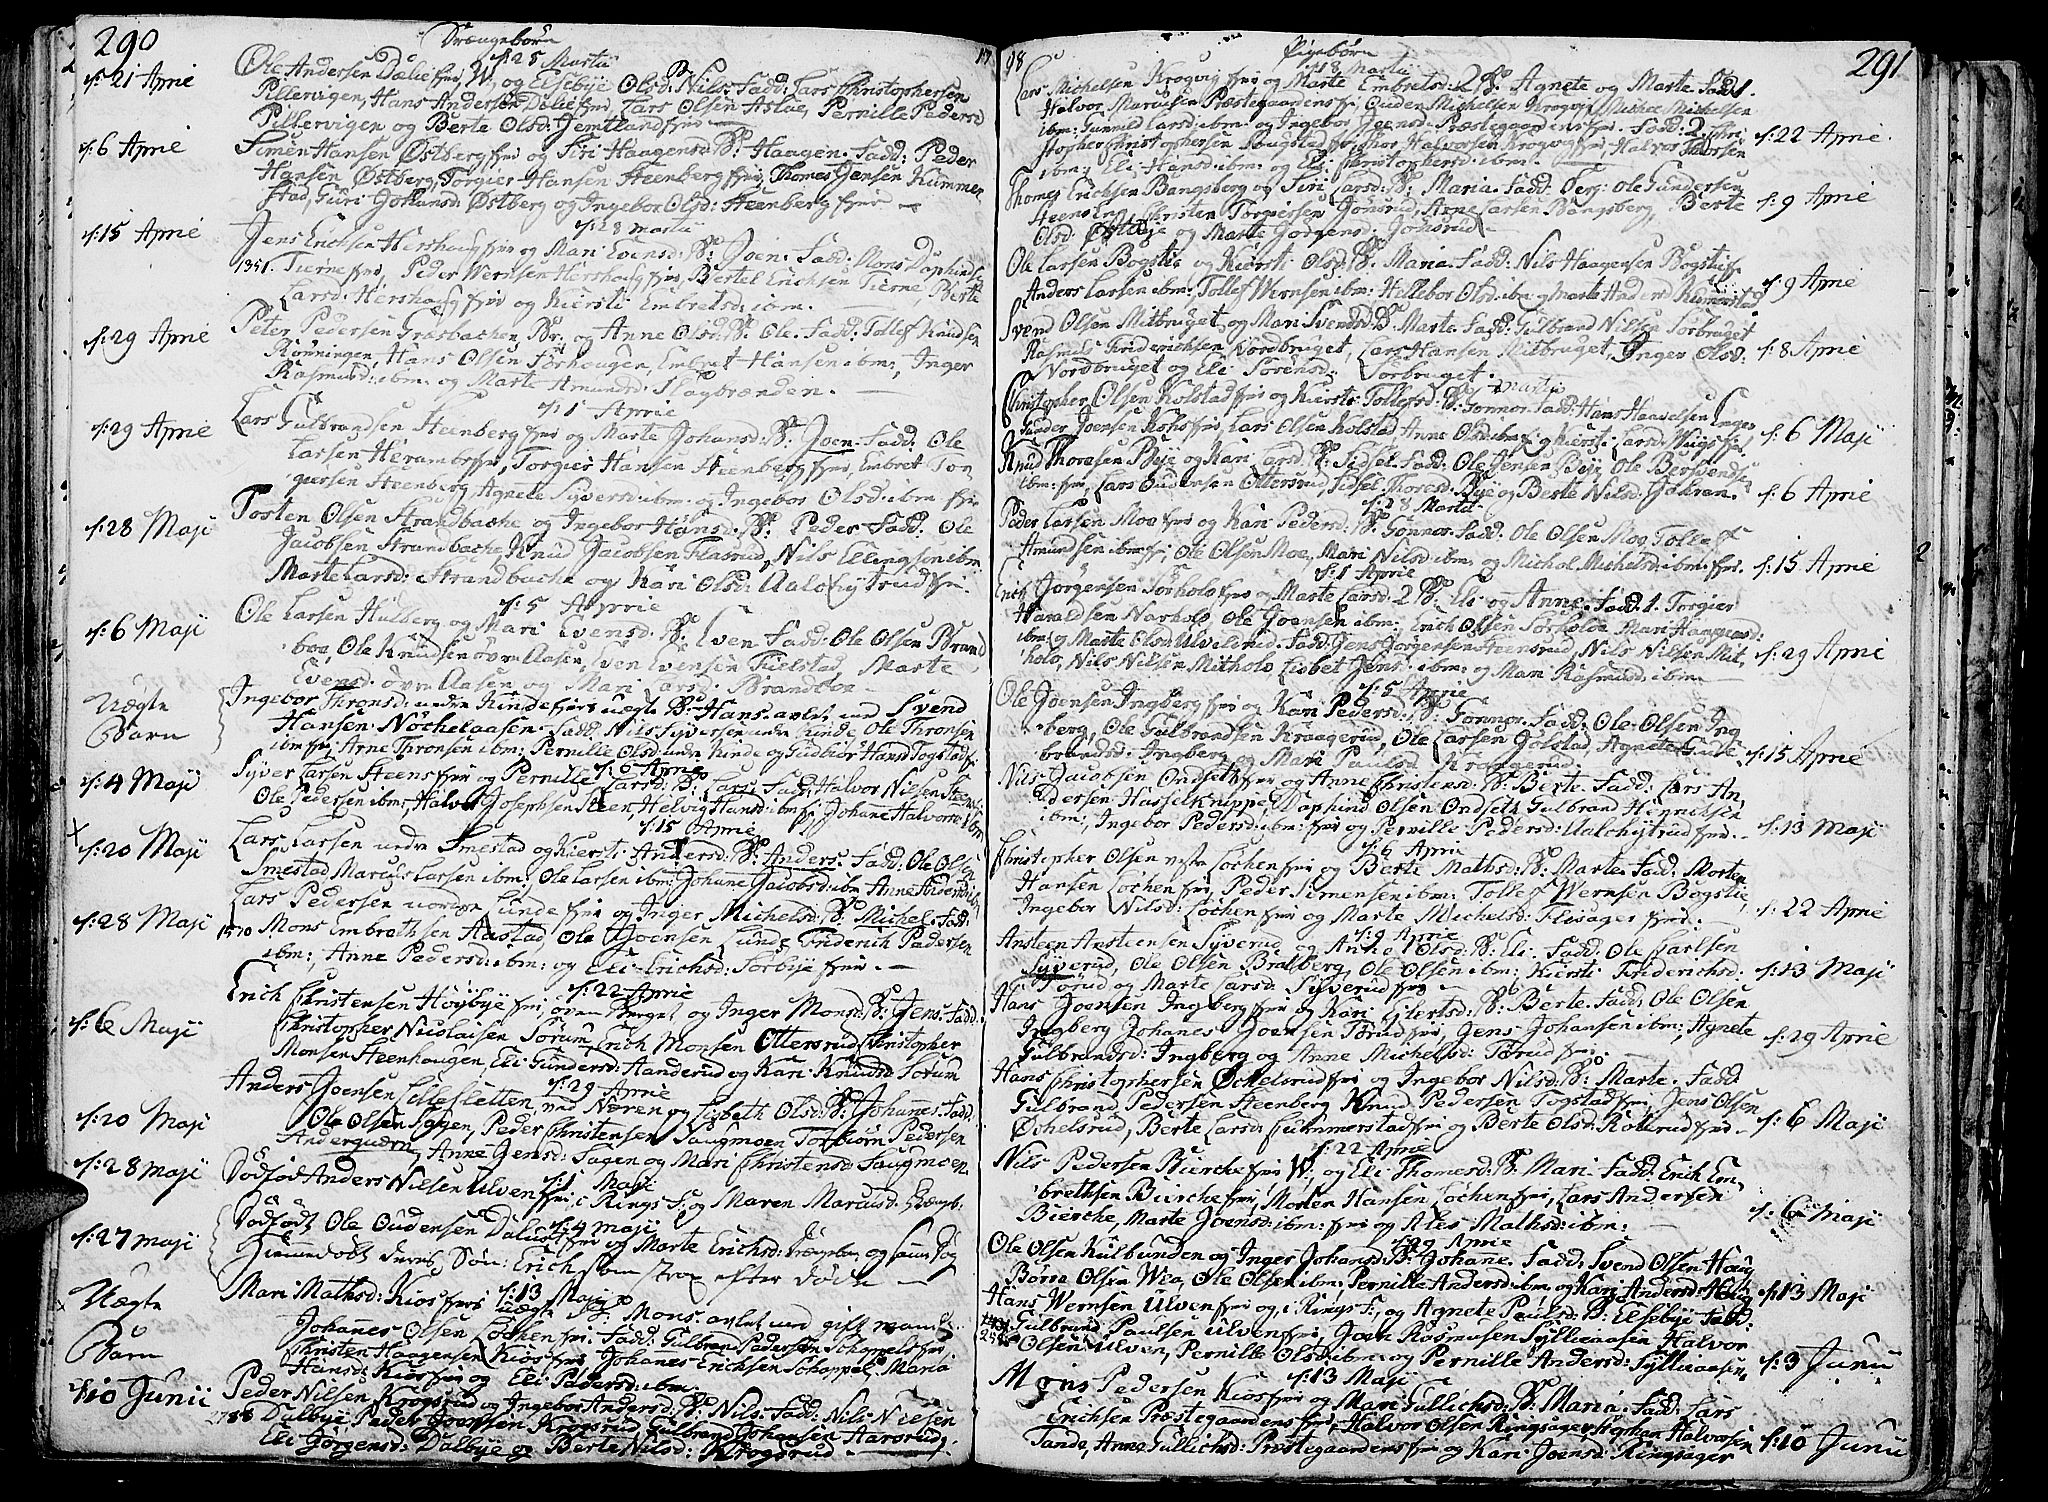 290
Drængebørn
17
d: 25 Martii
d: 21 April
Ole Andersen Dælie frie W. og Elsebye Olsd: B: Nils. Fadd: Lars Christophersen
Pillervigen, Hans Andersen Dælie frie, Lars Olsen Aslae, Pernille Pedersd
Pillervigen og Berte Olsd: Jemtland frie
d: 6 April
Simen Hansen Østberg frie og Siri Haagensd: B: Haagen. Fadd: Peder
Hansen Østberg, Torgier Hansen Steenberg frie, Thomes Jensen Kummer
stad, Guri Johansd: Østberg og Ingebor Olsd: Steenberg frie
d: 28 Martii
d: 15 April
Jens Erichsen Hershoug frie og Mari Evensd: B: Joen. Fadd: Mons Daphinds
1351. Tierne frie, Peder Wernsen Hershoug frie, Bertel Erichsen Tierne Berte
Larsd: Hershoug frie og Kiersti Embretsd: ibm.
d: 29 April
Peter Pedersen Græsbachen, Br. og Anne Olsd: B: Ole. Fadd: Tollef Knudsen
Rønningen, Hans Olsen Sørhougen, Embret Hansen ibm:, Inger
Rasmusd: ibm. og Marte Amundsd: Slagbrænden.
d: 1 April
d: 29 April
Lars Gulbrandsen Steenberg frie og Marte Johansd: B: Joen. Fadd: Ole
Larsen Heramb frie, Torgier Hansen Steenberg frie, Embret Tor
giersen Steenberg, Agnete Syversd: ibm. og Ingebor Olsd: ibm frie
d: 28 Maji
Tosten Olsen Strandbache og Ingebor Hansd: B: Peder Fadd: Ole
Jacobsen Strandbache, Knud Jacobsen Flasrud, Nils Ellingsen ibm.
Marte Larsd: Strandbache og Kari Olsd: Aalochytrud frie.
d: 5 April
d: 6 Maji
Ole Larsen Hulberg og Mari Evensd: B: Even Fadd: Ole Olsen Brand
boe Ole Knudsen øvre Aasen, Even Evensen Tielstad, Marte
Evensd: øvre Aasen og Mari Larsd: Brandboe
Uægte
Barn
Ingebor Thronsd: nedre Kinde frie uægte B: Hans. avlet med Svend
Hansen Nochelaasen. Fadd: Nils Syversen nedre Kinde Ole Thronsen
ibm frie, Arne Thronsen ibm: Pernille Olsd nedre Kinde og Gudbiør Hansd Togstad fr.
d: 6 April
d: 4 Maji
Syver Larsen Steens frie og Pernille Larsd: B: Lars: Fadd: Halvor Nilsen Steens
Ole Pedersen ibm:, Halvor Josephsen Steen, Helvig Hansd: ibm fr Johanne Halvorsd ibm
d: 15 April
x
d: 20 Maji
Lars Larsen nedre Smestad og Kiersti Andersd: B: Anders. Fadd: Ole Olsen
Smestad, Marcus Larsen ibm:, Ole Larsen ibm: Johanne Jacobsd: ibm Anne
d: 28 Maji
Lars Pedersen nordre Lunde frie og Inger Michelsd: B: Michel. Fadd:
1570 Mons Embrethsen Aastad, Ole Joensen Lunde, Friderich Pedersen
ibm:, Anne Pedersd: ibm: og Eli Erichsd: Sørbye frie.
d: 22 April
d: 6 Maji
Erich Christensen Høybye frie, oven Berget og Inger Monsd: B: Jens. Fadd:
Christopher Nicolaisen Sørum, Erich Monsen Ottersrud, Christopher
Monsen Steenhaugen, Eli Gundersd: Handerud og Kari Knudsd: Sorum
d: 29 April
d: 20 Maji
Anders Joensen Lilleslætten, ved Næren og Lisbeth Olsd: B: Johannes Fadd:
Ole Olsen Sagen, Peder Christensen Saugmoen, Torbiørn Pedersen
Anderquærn, Anne Jensd: Sagen og Mari Christensd: Saugmoen
d: 28 Maji
Dødfød Anders Nilsen Ulven frie, i Rings S: og Maren Marcusd: Drængb:
d: 1 Maji
d: 27 Maji
Dødfødt Ole Oudensen Dalust frie og Marte Erichsd: Drængebarn og samme Dag
d: 4 Maji
Hiemmedøbt deres Søn: Erich som strax efter døde
d: 13 Maji
x Uægte
Barn
Mari Mathsd: Kios frie uægte B: Mons. avlet med gift mand
Johannes Olsen Løchen frie. Fadd: Gulbran Pedersen Schoppels frie
Christen Haagensen Kios frie, Johanes Erichsen Schoppel, Maria
Hansd: Kios frie og Eli Pedersd: ibm:
d: 10 Junii
Peder Nilsen Krogsrud og Ingebor Andersd: B: Nils. Fadd: Nils Nilsen
2788 Dalbye Peder Joensen Krogsrud, Gulbrand Johansen Aarsrud,
Eli Jørgensd: Dalbye og Berte Nilsd: Krogsrud
98
Pigebørn
291
d: 18 Martii
Lars Michelsen Krogvig frie og Marte Embretsd: 2 B: Agnete og Marte. Fadd 1.
Halvor Marcusen Præstegaardens fr: Ouden Michelsen Krogvig, Michel Michelsen
ibm: Gunnild Larsd: ibm: og Ingebor Joensd: Præstegaardens fr. Fadd: 2. Chri
stopher Christophersen Bougstad fr, Thor Halvorsen Krogvig frie, Halvor Thorsen
ibm: Eli Hansd: ibm: og Eli Christophersd: ibm.
d: 22 April
Thomes Erichsen Bangsberg og Siri Larsd: B: Maria. Fadd: Serg: Ole Gundersen
Steens Eng, Christen Tormoesen Jønsrud, Arne Larsen Bangsberg, Berte
Olsd: Østbye og Marte Jørgensd: Jønsrud
d: 9 April
Ole Larsen Bogstie og Kiersti Olsd: B: Maria. Fadd: Nils Haagensen Bogstie fr.
Anders Larsen ibm: Tollef Wernsen ibm: Hellebor Olsd: ibm og Marte Andersd Kummerstad
d: 9 April
Svend Olsen Mitbruget, og Mari Svendsd: B: Marte. Fadd: Gulbrand Nilsen Sørbruget
Rasmus Friderichsen Nordbruget, Lars Hansen Mitbruget, Inger Olsd:
Nordbruget og Eli Sørensd: Sørbruget.
d: 8 April
Martii
Christopher Olsen Kolstad frie og Kiersti Tollefsd: B: Gonnor. Fadd: Hans Haavelsen Enger
Gunder Joensen Kohs frie, Lars Olsen Kolstad Anne Olsd: ibm fr og Kiersti Larsd: Wigs fr.
d: 6 Maji
Knud Thoresen Bye og Kari Larsd: B: Sidsel. Fadd: Ole Jensen Bye, Ole Berswendsen
ibm: frie, Lars Oudensen Ottersrud, Sidsel Thoresd: Bye og Berte Nilsd: Johren.
d: 6 April
d: 28 Martii
Peder Larsen Moe frie og Kari Pedersd: B: Gonnor. Fadd: Ole Olsen Moe, Tollef
Amundsen ibm: fr, Ole Olsen Moe, Mari Nilsd: ibm: og Michol Michelsd: ibm: frie.
d: 15 April
d: 1 April
Erich Jørgensen Sørholo frie og Marte Larsd: 2 B: Eli og Anne. Fadd 1. Torgier
Haraldsen Norholo, Ole Joensen ibm: Erich Olsen Sørholoe Mari Haagensd:
ibm: og Marte Olsd: Ulvelsrud. Fadd: Jens Jørgensen Steensrud, Nils Nilsen Mit,
holo, Nils Nilsen Mitholo, Lisbet Jensd: ibm: og Mari Rasmusd: ibm
d: 29 April
d: 5 April
Ole Joensen Ingberg frie og Kari Pedersd: B: Gonnor. Fadd: Ole Olsen Ing
berg, Ole Gulbrandsen Kraagerud, Ole Larsen Jølstad, Agnete Gule
brandsd: Ingberg og Mari Paulsd Kraagerud.
d: 15 April
Nils Jacobsen Ondset frie og Anne Christensd: B: Berte. Fadd: Lars An,
dersen Hasselknippe, Daphind Olsen Ondset, Gulbrand Henrichsen
ibm:, Ingebor Pedersd: ibm: frie og Pernille Pedersd: Ualchytrud frie.
d: 13 Maji
d: 6 April
Christopher Olsen vestre Løchen frie og Berte Mathsd: B: Marte. Fadd: Morten
Hansen Løchen frie, Peder Simensen ibm: Tollef Wernsen Bogstie,
Ingebor Nilsd: Løchen frie og Marte Michelsd: Flisager frie.
d: 22 April
d: 9 April
Ansteen Ansteensen Syverud og Anne Olsd: B: Eli. Fadd: Ole Carlsen
Syverud, Ole Olsen Bratberg, Ole Olsen ibm: Kiersti Friderichsd:
Torud og Marte Larsd: Syverud frie
d: 13 Maji
Hans Joensen Ingberg frie og Kari Eilertsd: B: Berte. Fadd: Ole Olsen
Ingberg Johanes Joensen Torud frie, Jens Johansen ibm:, Agnete
Gulbrandsd: Ingberg og Anne Michelsd: Torud frie.
d: 29 April
Hans Christophersen Øchelsrud frie og Ingebor Nilsd: B: Marte. Fadd
Gulbrand Pedersen Steenberg Knud Pedersen Togstad frie, Jens Olsen
Øchelsrud, Berte Larsd: Cummerstad frie og Berte Olsd: Roterud frie.
d: 6 Maji
d: 22 April
Nils Pedersen Bierche frie W: og Eli Thomesd: B: Mari. Fadd: Erich Em
brethsen Bierche frie, Morten Hansen Løchen frie, Lars Andersen
Bierche, Marte Joensd: ibm: frie og Ales Mathsd: ibm:
d: 6 Maji
d: 29 April
Ole Olsen Kulbunden og Inger Johansd: B: Johanne. Fadd: Svend Olsen Houg
Børre Olsen Wea, Ole Olsen ibm: Pernille Andersd: ibm og Kari Andersd: Houg
d: 13 Maji
Hans Wernsen Ulven frie og i Rings S:, og Agnete Paulsd: B: Elsebye Fadd:
Gulbrand Paulsen Ulven frie, Joen Rasmusen Sylliaasen Halvor
Olsen Ulven, Pernille Olsd: ibm: og Pernille Andersd: Sylliaasen,
d: 3 Junii
d: 13 Maji
Mons Pedersen Kios frie og Mari Gullichsd: B: Maria. Fadd: Lars
Erichsen Præstegaardens frie, Halvor Olsen Ringsager Stephan Halvorsen
Tande, Anne Gullichsd: Præstegaardens frie og Kari Joensd: Ringsager
d: 10 Junii